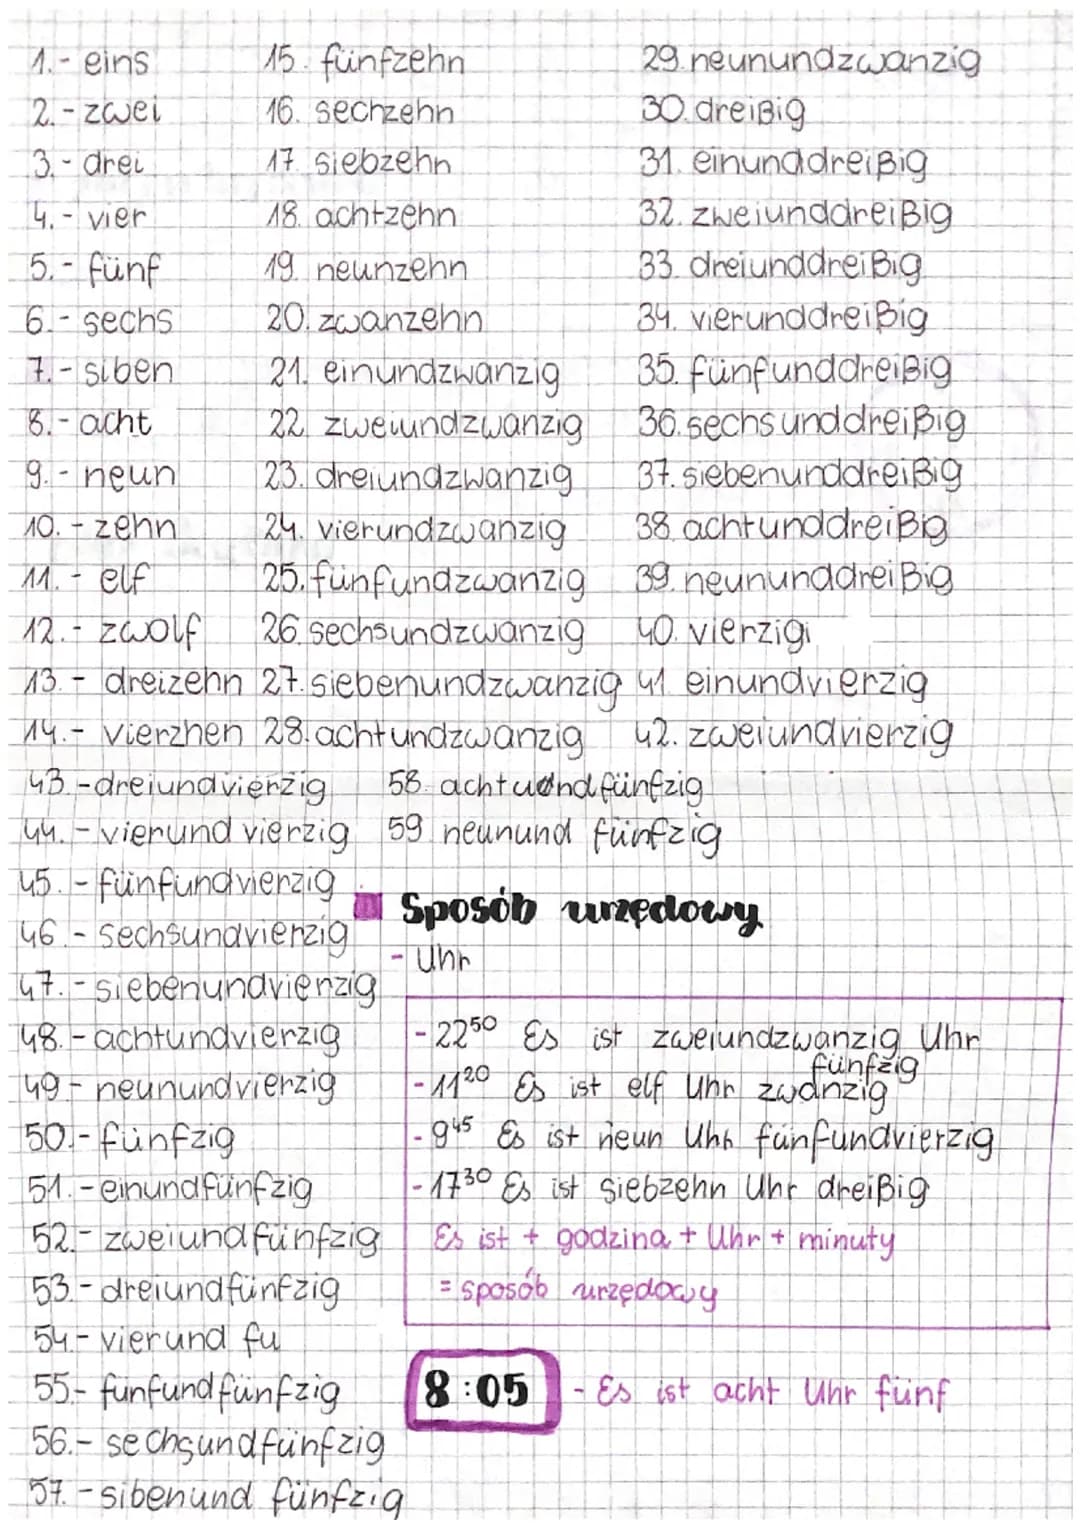 1.- eins
2.- zwei
3.- drei
4.- vier
5.- fünf
6.- sechs
7.- siben
8.- acht
9.- neun
10.- zehn
11.- elf
12.- zwolf
13.- dreizehn
14.- vierzhen
15. fünfzehn
16. sechzehn
17. siebzehn
18. achtzehn
19. neunzehn
20. zwanzehn
21. einundzwanzig
22. zweiundzwanzig
23. dreiundzwanzig
24. vierundzwanzig
25. fünfundzwanzig
26. sechsundzwanzig
27. siebenundzwanzig
28. achtundzwanzig
29. neunundzwanzig
30. dreißig
31. einunddreißig
32. zweiunddreißig
33. dreiunddreißig
34. vierunddreißig
35. fünfunddreißig
36. sechsunddreißig
37. siebenunddreißig
38. achtunddreißig
39. neununddreißig
40. vierzig
41. einundvierzig
42. zweiundvierzig
43.-dreiundvierzig
44.- vierund vierzig
45.- fünfundvierzig
46.- sechsundvierzig
47.- siebenundvierzig
48.- achtundvierzig
49- neunundvierzig
50.- fünfzig
51.-einundfünfzig
52.- zweiundfünfzig
53.- dreiundfünfzig
54- vierund fu
55- funfundfünfzig
56.- sechsundfünfzig
57.-sibenund fünfzig
58. achtundfünfzig
59 neunund fünfzig
Sposób urzędowy
- Uhr
- 22⁵⁰ Es ist zweiundzwanzig Uhr
fünfzig
- 11²⁰ Es ist elf Uhr zwanzig
- 9⁴⁵ Es ist neun Uhr fünfundvierzig
- 17³⁰ Es ist siebzehn Uhr dreißig
Es ist + godzina + Uhr + minuty
= sposób urzędowy
8:05 - Es ist acht Uhr fünf